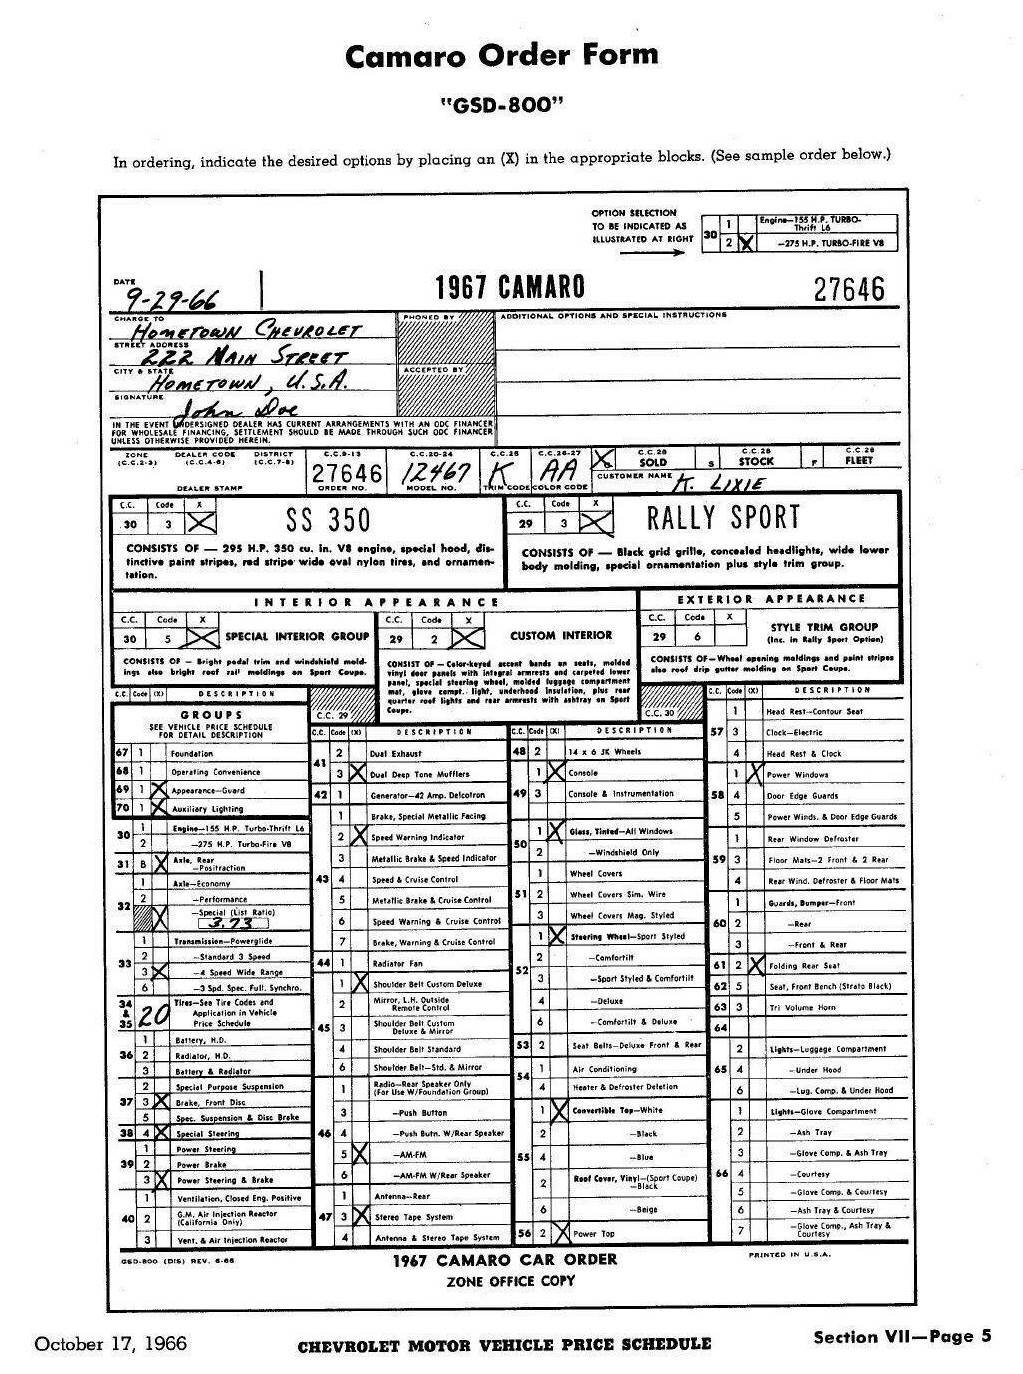 Camaro Order Form
"GSD-800"
In ordering, indicate the desired options by placing an (X) in the appropriate blocks. (See sample order below.)
OPTION SELECTION
TO BE INDICATED AS
ILLUSTRATED AT RIGHT
30 1 Engine—155 H.P. TURBO-
Thrift L6
2 X —275 H.P. TURBO-FIRE V8
DATE
9-29-66
1967 CAMARO
27646
CHARGE TO
HOMETOWN CHEVROLET
STREET ADDRESS
222 MAIN STREET
CITY & STATE
HOMETOWN, U.S.A.
SIGNATURE
John Doe
PHONED BY
ACCEPTED BY
ADDITIONAL OPTIONS AND SPECIAL INSTRUCTIONS
IN THE EVENT UNDERSIGNED DEALER HAS CURRENT ARRANGEMENTS WITH AN ODC FINANCER
FOR WHOLESALE FINANCING, SETTLEMENT SHOULD BE MADE THROUGH SUCH ODC FINANCER
UNLESS OTHERWISE PROVIDED HEREIN.
ZONE (C.C.2-3)
DEALER CODE (C.C.4-6)
DISTRICT (C.C.7-8)
DEALER STAMP
C.C.9-13
27646
ORDER NO.
C.C.20-24
12467
MODEL NO.
C.C.25
K
TRIM CODE
C.C.26-27
AA
COLOR CODE
X C.C.28 SOLD
S C.C.28 STOCK
F C.C.28 FLEET
CUSTOMER NAME K. LIXIE
C.C. Code X
30 3 X SS 350
CONSISTS OF — 295 H.P. 350 cu. in. V8 engine, special hood, dis-
tinctive paint stripes, red stripe wide oval nylon tires, and ornamen-
tation.
C.C. Code X
29 3 X RALLY SPORT
CONSISTS OF — Black grid grille, concealed headlights, wide lower
body molding, special ornamentation plus style trim group.
INTERIOR APPEARANCE
C.C. Code X
30 5 X SPECIAL INTERIOR GROUP
CONSISTS OF — Bright pedal trim and windshield mold-
ings also bright roof rail moldings on Sport Coupe.
C.C. Code X
29 2 X CUSTOM INTERIOR
CONSIST OF—Color-keyed accent bands on seats, molded
vinyl door panels with integral armrests and carpeted lower
panel, special steering wheel, molded luggage compartment
mat, glove compt. light, underhood insulation, plus rear
quarter roof lights and rear armrests with ashtray on Sport
Coupe.
EXTERIOR APPEARANCE
C.C. Code X
29 6 STYLE TRIM GROUP
(Inc. in Rally Sport Option)
CONSISTS OF—Wheel opening moldings and paint stripes
also roof drip gutter molding on Sport Coupe.
C.C. Code (X) DESCRIPTION
GROUPS
SEE VEHICLE PRICE SCHEDULE
FOR DETAIL DESCRIPTION
67 1 Foundation
68 1 Operating Convenience
69 1 X Appearance—Guard
70 1 X Auxiliary Lighting
30 1 Engine—155 H.P. Turbo-Thrift L6
2 —275 H.P. Turbo-Fire V8
31 B X Axle, Rear
—Positraction
32 1 Axle—Economy
2 —Performance
X —Special (List Ratio)
3.73
33 1 Transmission—Powerglide
2 —Standard 3 Speed
3 X —4 Speed Wide Range
6 —3 Spd. Spec. Full. Synchro.
34 & 35 20 Tires—See Tire Codes and
Application in Vehicle
Price Schedule
36 1 Battery, H.D.
2 Radiator, H.D.
3 Battery & Radiator
37 2 Special Purpose Suspension
3 X Brake, Front Disc
5 Spec. Suspension & Disc Brake
38 4 X Special Steering
39 1 Power Steering
2 Power Brake
3 X Power Steering & Brake
40 1 Ventilation, Closed Eng. Positive
2 G.M. Air Injection Reactor
(California Only)
3 Vent. & Air Injection Reactor
C.C. 29
C.C. Code (X) DESCRIPTION
41 2 Dual Exhaust
3 X Dual Deep Tone Mufflers
42 1 Generator—42 Amp. Delcotron
43 1 Brake, Special Metallic Facing
2 X Speed Warning Indicator
3 Metallic Brake & Speed Indicator
4 Speed & Cruise Control
5 Metallic Brake & Cruise Control
6 Speed Warning & Cruise Control
7 Brake, Warning & Cruise Control
44 1 Radiator Fan
45 1 X Shoulder Belt Custom Deluxe
2 Mirror, L.H. Outside
Remote Control
3 Shoulder Belt Custom
Deluxe & Mirror
4 Shoulder Belt Standard
6 Shoulder Belt—Std. & Mirror
46 1 Radio—Rear Speaker Only
(For Use W/Foundation Group)
3 —Push Button
4 —Push Butn. W/Rear Speaker
5 X —AM-FM
6 —AM-FM W/Rear Speaker
47 1 Antenna—Rear
3 X Stereo Tape System
4 Antenna & Stereo Tape System
C.C. Code (X) DESCRIPTION
48 2 14 x 6 JK Wheels
49 1 X Console
3 Console & Instrumentation
50 1 X Glass, Tinted—All Windows
2 —Windshield Only
51 1 Wheel Covers
2 Wheel Covers Sim. Wire
3 Wheel Covers Mag. Styled
52 1 X Steering Wheel—Sport Styled
2 —Comfortilt
3 —Sport Styled & Comfortilt
4 —Deluxe
6 —Comfortilt & Deluxe
53 2 Seat Belts—Deluxe Front & Rear
54 1 Air Conditioning
4 Heater & Defroster Deletion
55 1 X Convertible Top—White
2 —Black
4 —Blue
2 Roof Cover, Vinyl—(Sport Coupe)
—Black
6 —Beige
56 2 X Power Top
C.C. 30
C.C. Code (X) DESCRIPTION
57 1 Head Rest—Contour Seat
3 Clock—Electric
4 Head Rest & Clock
58 1 X Power Windows
4 Door Edge Guards
5 Power Winds. & Door Edge Guards
59 1 Rear Window Defroster
3 Floor Mats—2 Front & 2 Rear
4 Rear Wind. Defroster & Floor Mats
60 1 Guards, Bumper—Front
2 —Rear
3 —Front & Rear
61 2 X Folding Rear Seat
62 5 Seat, Front Bench (Strato Black)
63 3 Tri Volume Horn
64
65 2 Lights—Luggage Compartment
4 —Under Hood
6 —Lug. Comp. & Under Hood
66 1 Lights—Glove Compartment
2 —Ash Tray
3 —Glove Comp. & Ash Tray
4 —Courtesy
5 —Glove Comp. & Courtesy
6 —Ash Tray & Courtesy
7 —Glove Comp., Ash Tray &
Courtesy
GSD-800 (DIS) REV. 6-66
1967 CAMARO CAR ORDER
ZONE OFFICE COPY
PRINTED IN U.S.A.
October 17, 1966
CHEVROLET MOTOR VEHICLE PRICE SCHEDULE
Section VII—Page 5